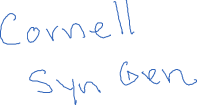 Cornell
Syn Gen